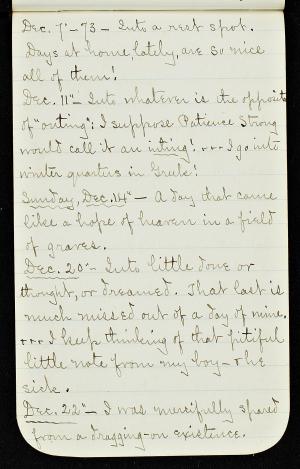 Dec. 7"-73 - Into a rest spot.
Days at home, lately, are so nice
all of them!
Dec. 11" - Into whatever is the opposite
of "outing": I suppose Patience Strong
would call it an inting! ... I go into
winter quarters in Greek!
Sunday, Dec. 14" - A day that came
like a hope of heaven in a field
of graves.
Dec. 20" - Into little done or
thought, or dreamed. That last is
much missed out of a day of mine.
... I keep thinking of that pitiful
little note from my boy - the
sick.
Dec. 22" - I was mercifully spared
from a dragging-on existence.